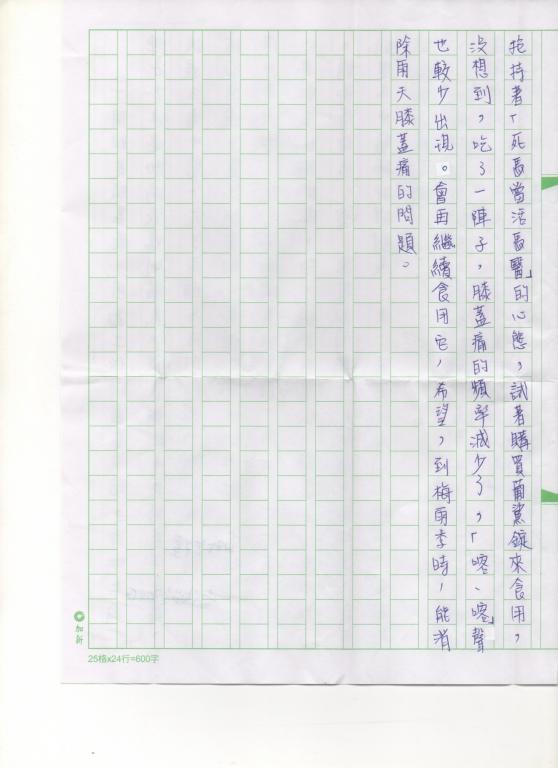 抱持著「死馬當活馬醫」的心態，試著購買葡鯊錠來食用，
沒想到，吃了一陣子，膝蓋痛的頻率減少了，「喀、喀」聲
也較少出現。會再繼續食用它，希望，到梅雨季時，能消
除雨天膝蓋痛的問題。
25格x24行=600字